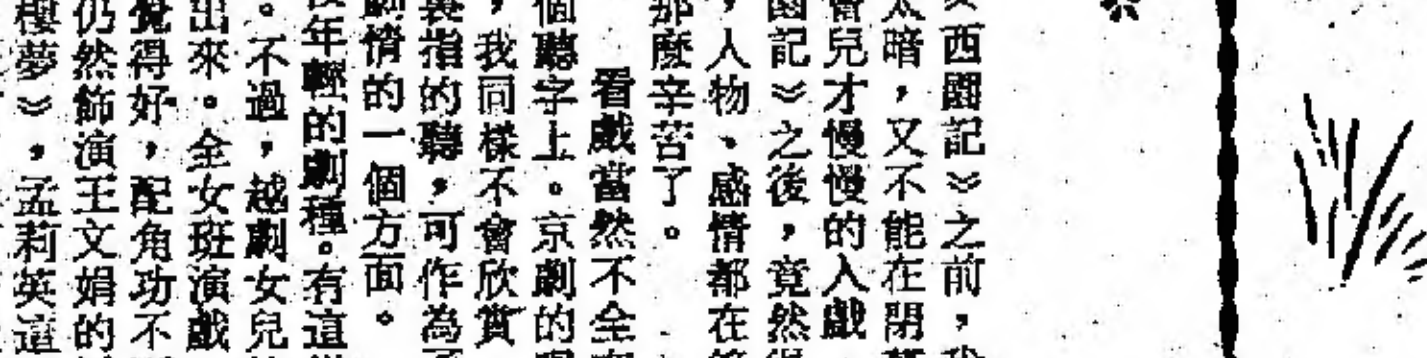 西園記》之前，我
太暗，又不能在閉幕
會兒才慢慢的入戲
園記》之後，竟然很
，人物、感情都在
那麽辛苦了。
看戲當然不全
個聽字上。京劇的唱
，我同樣不會欣賞
裏指的聽，可作為
劇情的一個方面。
年輕的劇種。有這
。不過，越劇女兒
出來。全女班演戲
覺得好，配角功不
仍然飾演王文娟的
樓夢》，孟莉英這